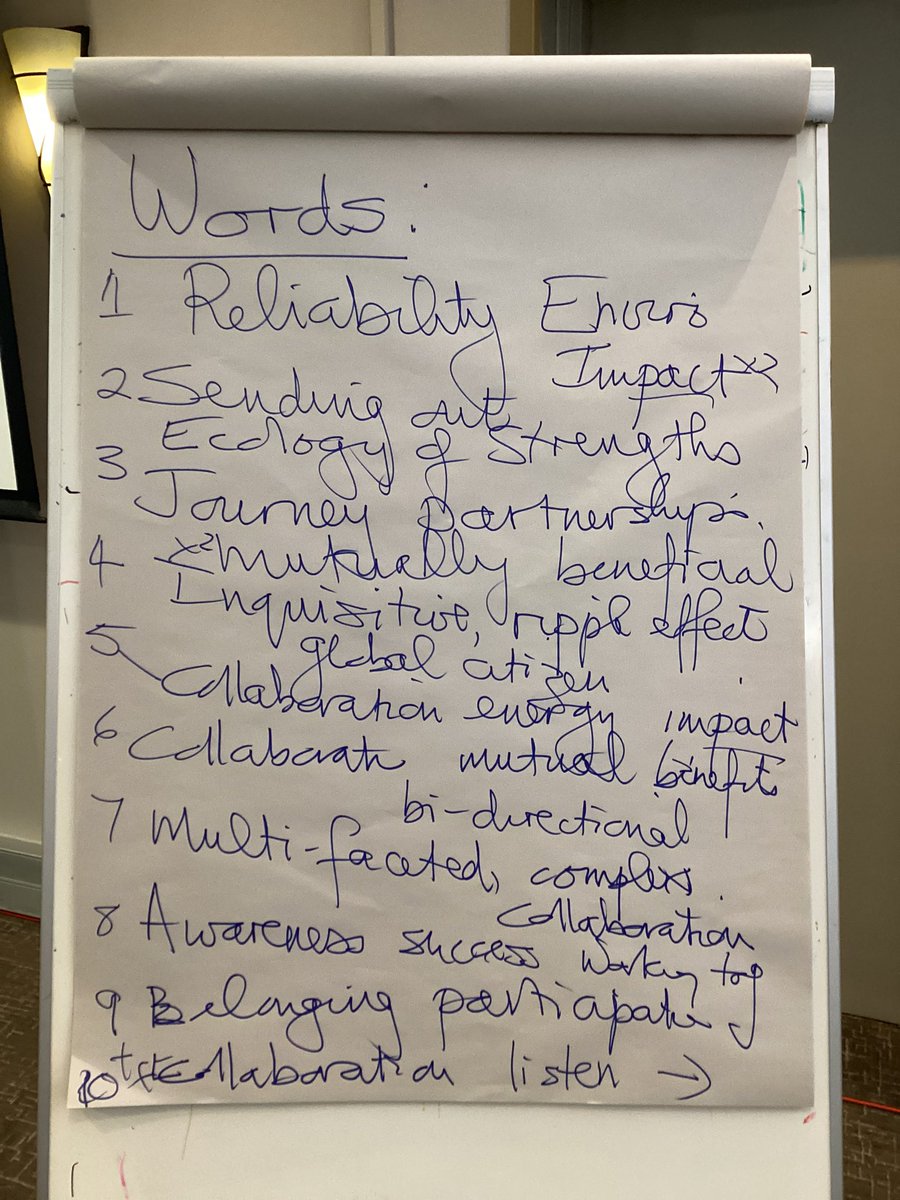 Words:
1 Reliability Enviro
Impact x2
2 Sending out
3 Ecology of Strengths
Journey partnerships.
4 x2 Mutually beneficial
Inquisitive, ripple effect
5 global citizen
Collaboration energy impact
6 Collaborate mutual benefits
bi-directional
7 Multi-faceted, complex
Collaboration
8 Awareness success working tog
9 Belonging participate
10 Collaboration listen →